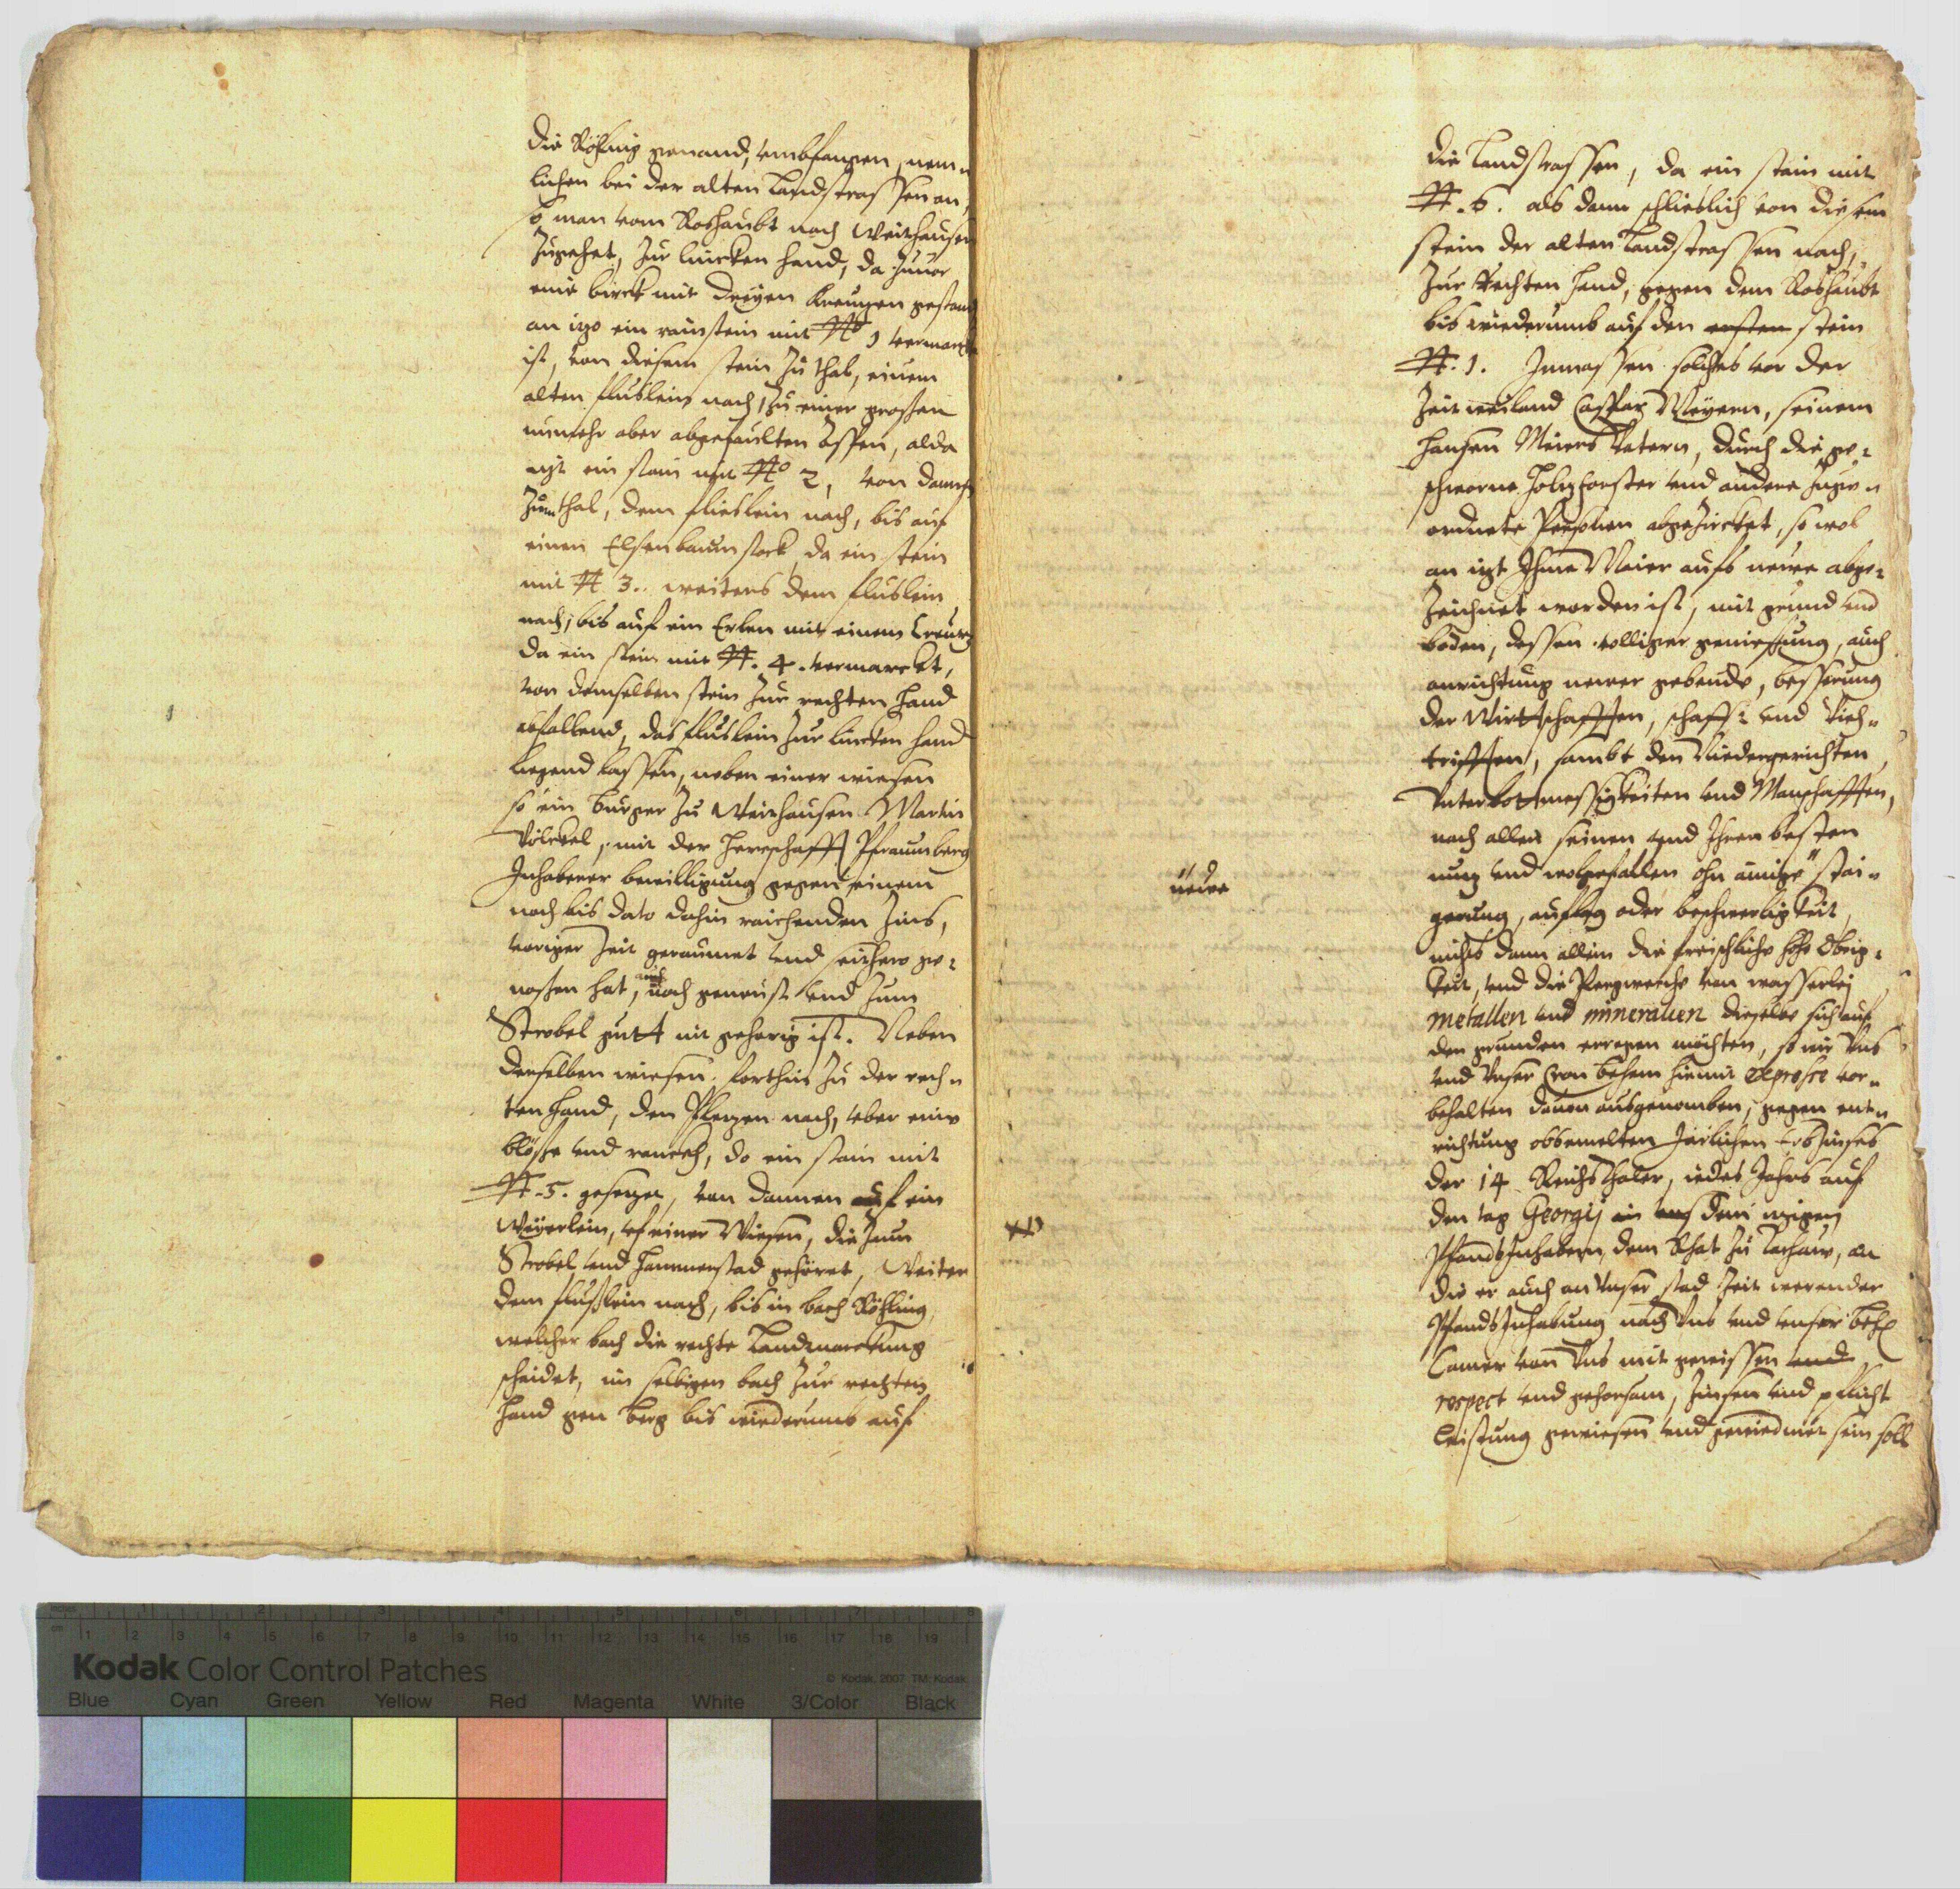 die Röhling genand, umbfangen, nem„
lichen bei der alten Landstrassen an,
so man vom Roshaubt nach Weithausen
zugehet, zur lincken hand, da zuuor
eine birck mit dreyen Kreutzen gestand
an itzo ein rainstein mit No 1 vermarckt
ist, von diesem stein zu thal, einem
alten fluslein nach, zu einer grossen
nunmehr aber abgefaulten Aspen, alda
itzt ein stain mit No 2, von dannen
zum thal, dem flieslein nach, bis auf
einen Elsenbaumstock, da ein stein
mit N 3. weiters dem fluslein
nach, bis auf ein Erlen mit einem Creutz
da ein stein mit N. 4. vermarckt,
von demselben stein zur rechten Hand
abfallend, das fluslein zur lincken hand
liegend lassen, neben einer wiesen
so ein burger zu Weithausen Martin
Völckel, mit der Herrschafft Pfraumberg
Inhabener bewilligung gegen einem
noch bis dato dahin raichenden Zins,
voriger Zeit geraumet und seithero ge„
nossen hat, auch noch geneust und zum
Strobel gutt nit gehorig ist. Neben
derselben wiesen forthin zu der rech„
ten Hand, den Flerzen nach, uber eine
blösse und raneck, do ein stain mit
N. 5. gesetzet, von dannen auf ein
Weyerlein, uf einer Wiesen, die zum
Strobel und Hammerstad gehöret, Weiter
dem fluslein nach, bis in bach Röhling,
welcher bach die rechte Landmarckung
scheidet, im selbigen bach zur rechten
Hand gen berg bis wiederumb auf
die Landstrassen, da ein stain mit
N. 6. als dann schlieslich von diesem
stein der alten Landstrassen nach,
zur Rechten Hand, gegen dem Roshaubt
bis wiederumb auf den ersten stein
N. 1. Inmassen solches vor der
Zeit weiland Caspar Meyern, seinem
Hansen Meiers Vatern, durch die ge„
schworne Holtzforster und andere zuge„
ordnete Personen abgezircket, so wol
an itzt Ihme Maier aufs neue abge„
zeichnet worden ist, mit grund und
boden, dessen volliger geniessung, auch
anrichtung newer gebeude, besserung
der Wirtschafften, schaff„ und Vieh„
trifften, sambt den Niedergerichten,
Unterbottmessigkeiten und Manschafften,
nach allen seinen und Ihren besten
nutz und wolgefallen ohn ainige stai„
neue
gerung, auflag oder beschwerligkeit,
nichts dann allein die freischliche hohe Obrig„
keit, und die Pergwerche von wasserlej
metallen und mineralien dieselbe sich auf
den grunden erregen möchten, so wir Uns
und Unser Cron beheim hiemit expresse vor„
behalten dauon ausgenomben, gegen ent„
richtung obbemelten Järlichen Erbzinses
der 14 Reichsthaler, iedes Jahrs auf
den tag Georgij dem itzigen
Pfandsinhabern, dem Rhat zu Tachaw, an
die er auch an Unser stad Zeit werender
Pfandsinhabung nach Uns und unser Beh
Camer von Uns mit gewissen und
respect und gehorsam, Zinsen und pflicht
leistung gewiesen und gewiedmet sein soll